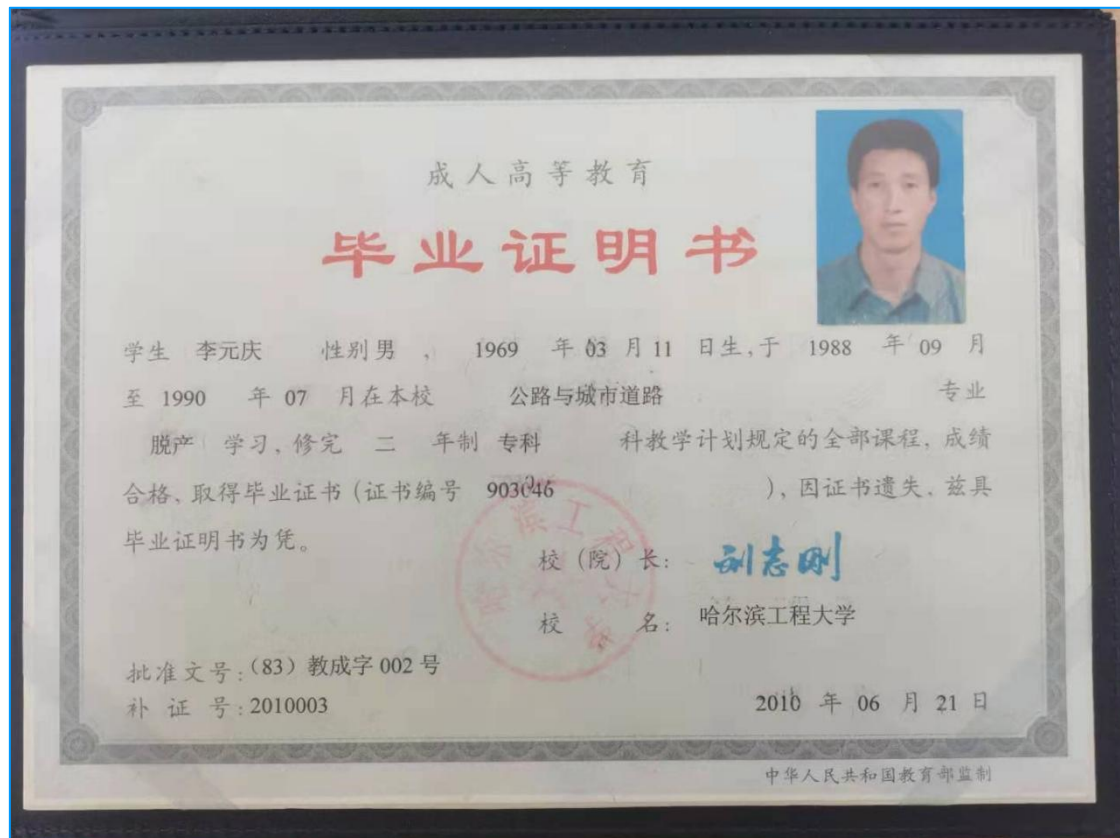 成人高等教育
毕业证明书
学生 李元庆 性别 男 , 1969 年 03 月 11 日生,于 1988 年 09 月
至 1990 年 07 月在本校 公路与城市道路 专业
脱产 学习,修完 二 年制 专科 科教学计划规定的全部课程,成绩
合格、取得毕业证书(证书编号 903046 ),因证书遗失、兹具
毕业证明书为凭。
校(院)长: 刘志刚
校 名: 哈尔滨工程大学
批准文号:(83)教成字 002 号
补 证 号:2010003
2010 年 06 月 21 日
中华人民共和国教育部监制
哈尔滨工程大学